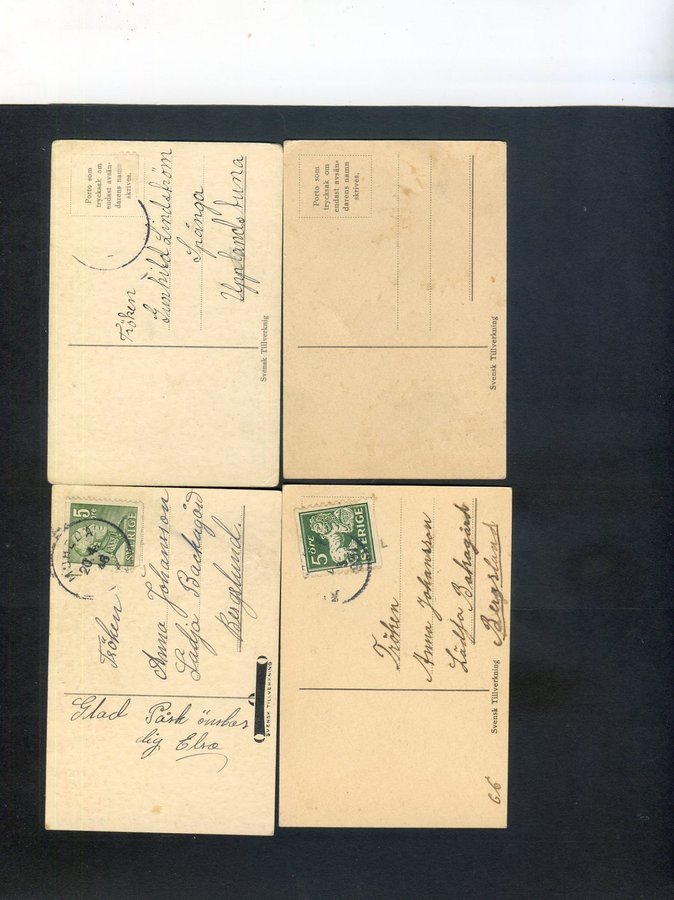 Porto som
trycksak om
endast avsän-
darens namn
skrives.
Fröken
Gunhild Lindström
Spånga
Upplands Tuna
Svensk Tillverknig
Porto som
trycksak om
endast avsän-
darens namn
skrives.
Svensk Tillverkning
5 öre
SVERIGE
20 4
46
Fröken
Anna Johansson
Lädja Backagård
Bergslund.
Glad Påsk önskas
dig Elsa
SVENSK TILLVERKNING
5 ÖRE
SVERIGE
Fröken
Anna Johansson
Lädja Bakagård
Bergslund
Svensk Tillverkning
66